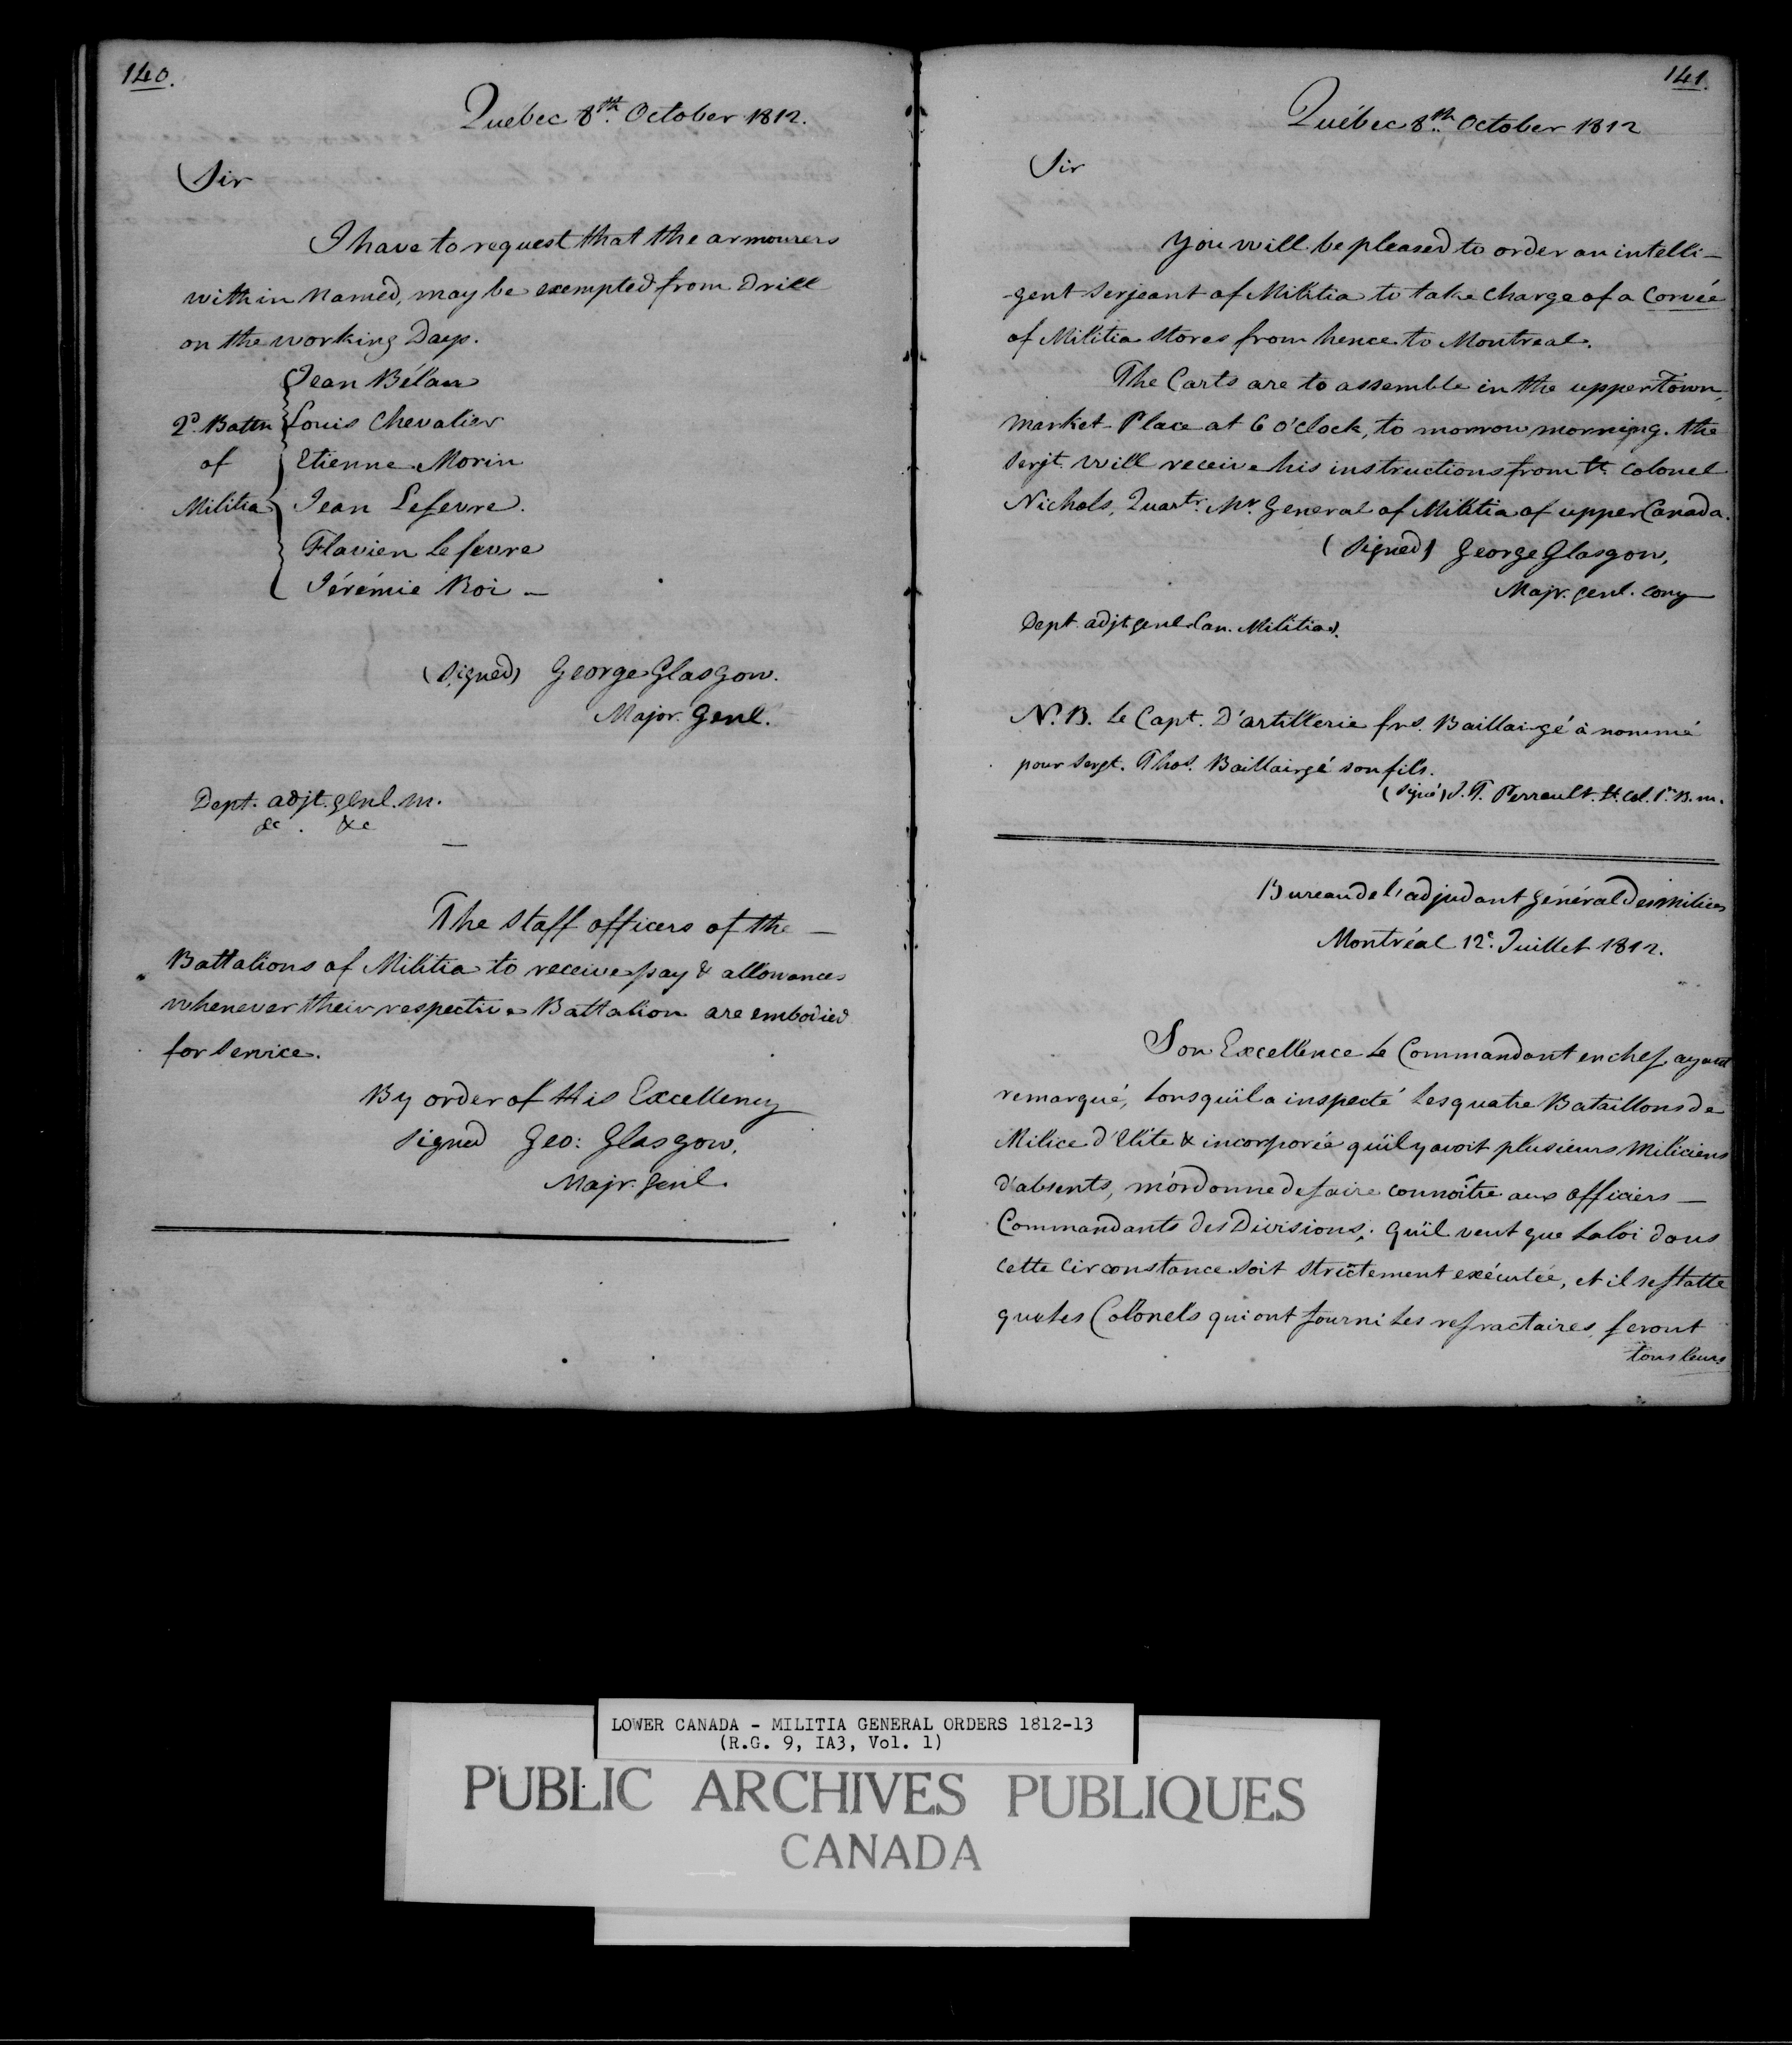 140.
Quebec 8th. October 1812.
Sir
I have to request that the armourers
within named, may be exempted from Drill
on the working Days.
Jean Bélan
2d. Battn Louis Chevalier
of Etienne Morin
Militia Jean Lefevre.
Flavien Lefevre
Jérémie Roi —
(Signed) George Glasgow.
Major. Genl.
Dept. adjt. genl. m.
&c . &c
—
The Staff officers of the —
Battalions of Militia to receive pay & allowances
whenever their respective Battalion are embodied
for Service.
By order of His Excellency
Signed Geo: Glasgow.
Majr. Genl.
141.
Québec 8th. October 1812
Sir
You will be pleased to order an intelli-
-gent Serjeant of Militia to take charge of a Corvée
of Militia Stores from hence to Montreal.
The Carts are to assemble in the upper Town,
market Place at 6 o'Clock, to morrow morning. the
Serjt. will receive his instructions from Lt. Colonel
Nichols, Quartr. Mr. General of Militia of upper Canada.
(Signed) George Glasgow,
Majr. genl. comg
Dept. adjt. genl. Can. Militia.
N.B. le Capt. D'artillerie frs. Baillairgé à nommé
pour Sergt. Thos. Baillairgé son fils.
(Signé) J. F. Perrault. Lt. Col. 1er. B. m.
Bureau de l'adjudant Général des milices
Montréal 12e. Juillet 1812.
Son Excellence Le Commandant en chef, ayant
remarqué, Lorsqu'il a inspecté Les quatre Bataillons de
Milice d'Elite & incorporée qu'il y avoit plusieurs Miliciens
d'absents, m'ordonne de faire connoître aux Officiers —
Commandants des Divisions, qu'il veut que La loi dans
cette Circonstance soit strictement exécutée, et il se flatte
que les Colonels qui ont fourni Les refractaires, feront
tous leurs
LOWER CANADA - MILITIA GENERAL ORDERS 1812-13
(R.G. 9, IA3, Vol. 1)
PUBLIC ARCHIVES PUBLIQUES
CANADA